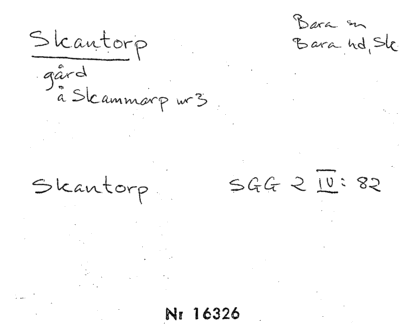 Skantorp
Bara sn
Bara hd, Sk
gård
å Skammarp nr 3
Skantorp
SGG 2 IV: 82
Nr 16326